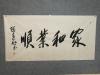 家和業順